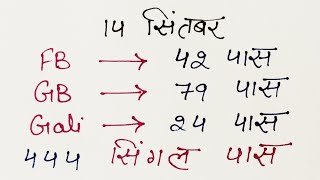 14 सितंबर
FB → 42 पास
GB → 79 पास
Gali → 24 पास
444 सिंगल पास